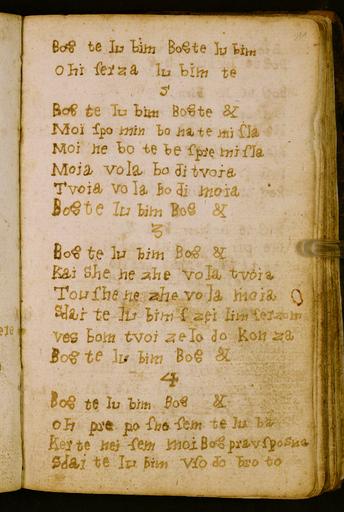 Bog te lu bim Bogte lu bim
o hi ſerza lu bim te
2
Bog te lu bim Bogte &
Moi ſpo min bo na te mi ſla
Moi ne bo te be ſpre mi ſla
Moia vo la bo di tvoia
Tvoia vo la Bo di moia
Bogte lu bim Bog &
3
Bog te lu bim Bog &
Kai She ne zhe vo la tvoia
Tou ſhe ne zhe vo la moia
Sdai te lu bim ſ zei lim ſerzom
ves bom tvoi ze lo do Kon za
Bog te lu bim Bog &
4
Bog te lu bim Bog &
oh pre po ſno ſem te lu ba
Ker te nei ſem moi Bog prav ſposna
Sdai te lu bim vſo do bro to